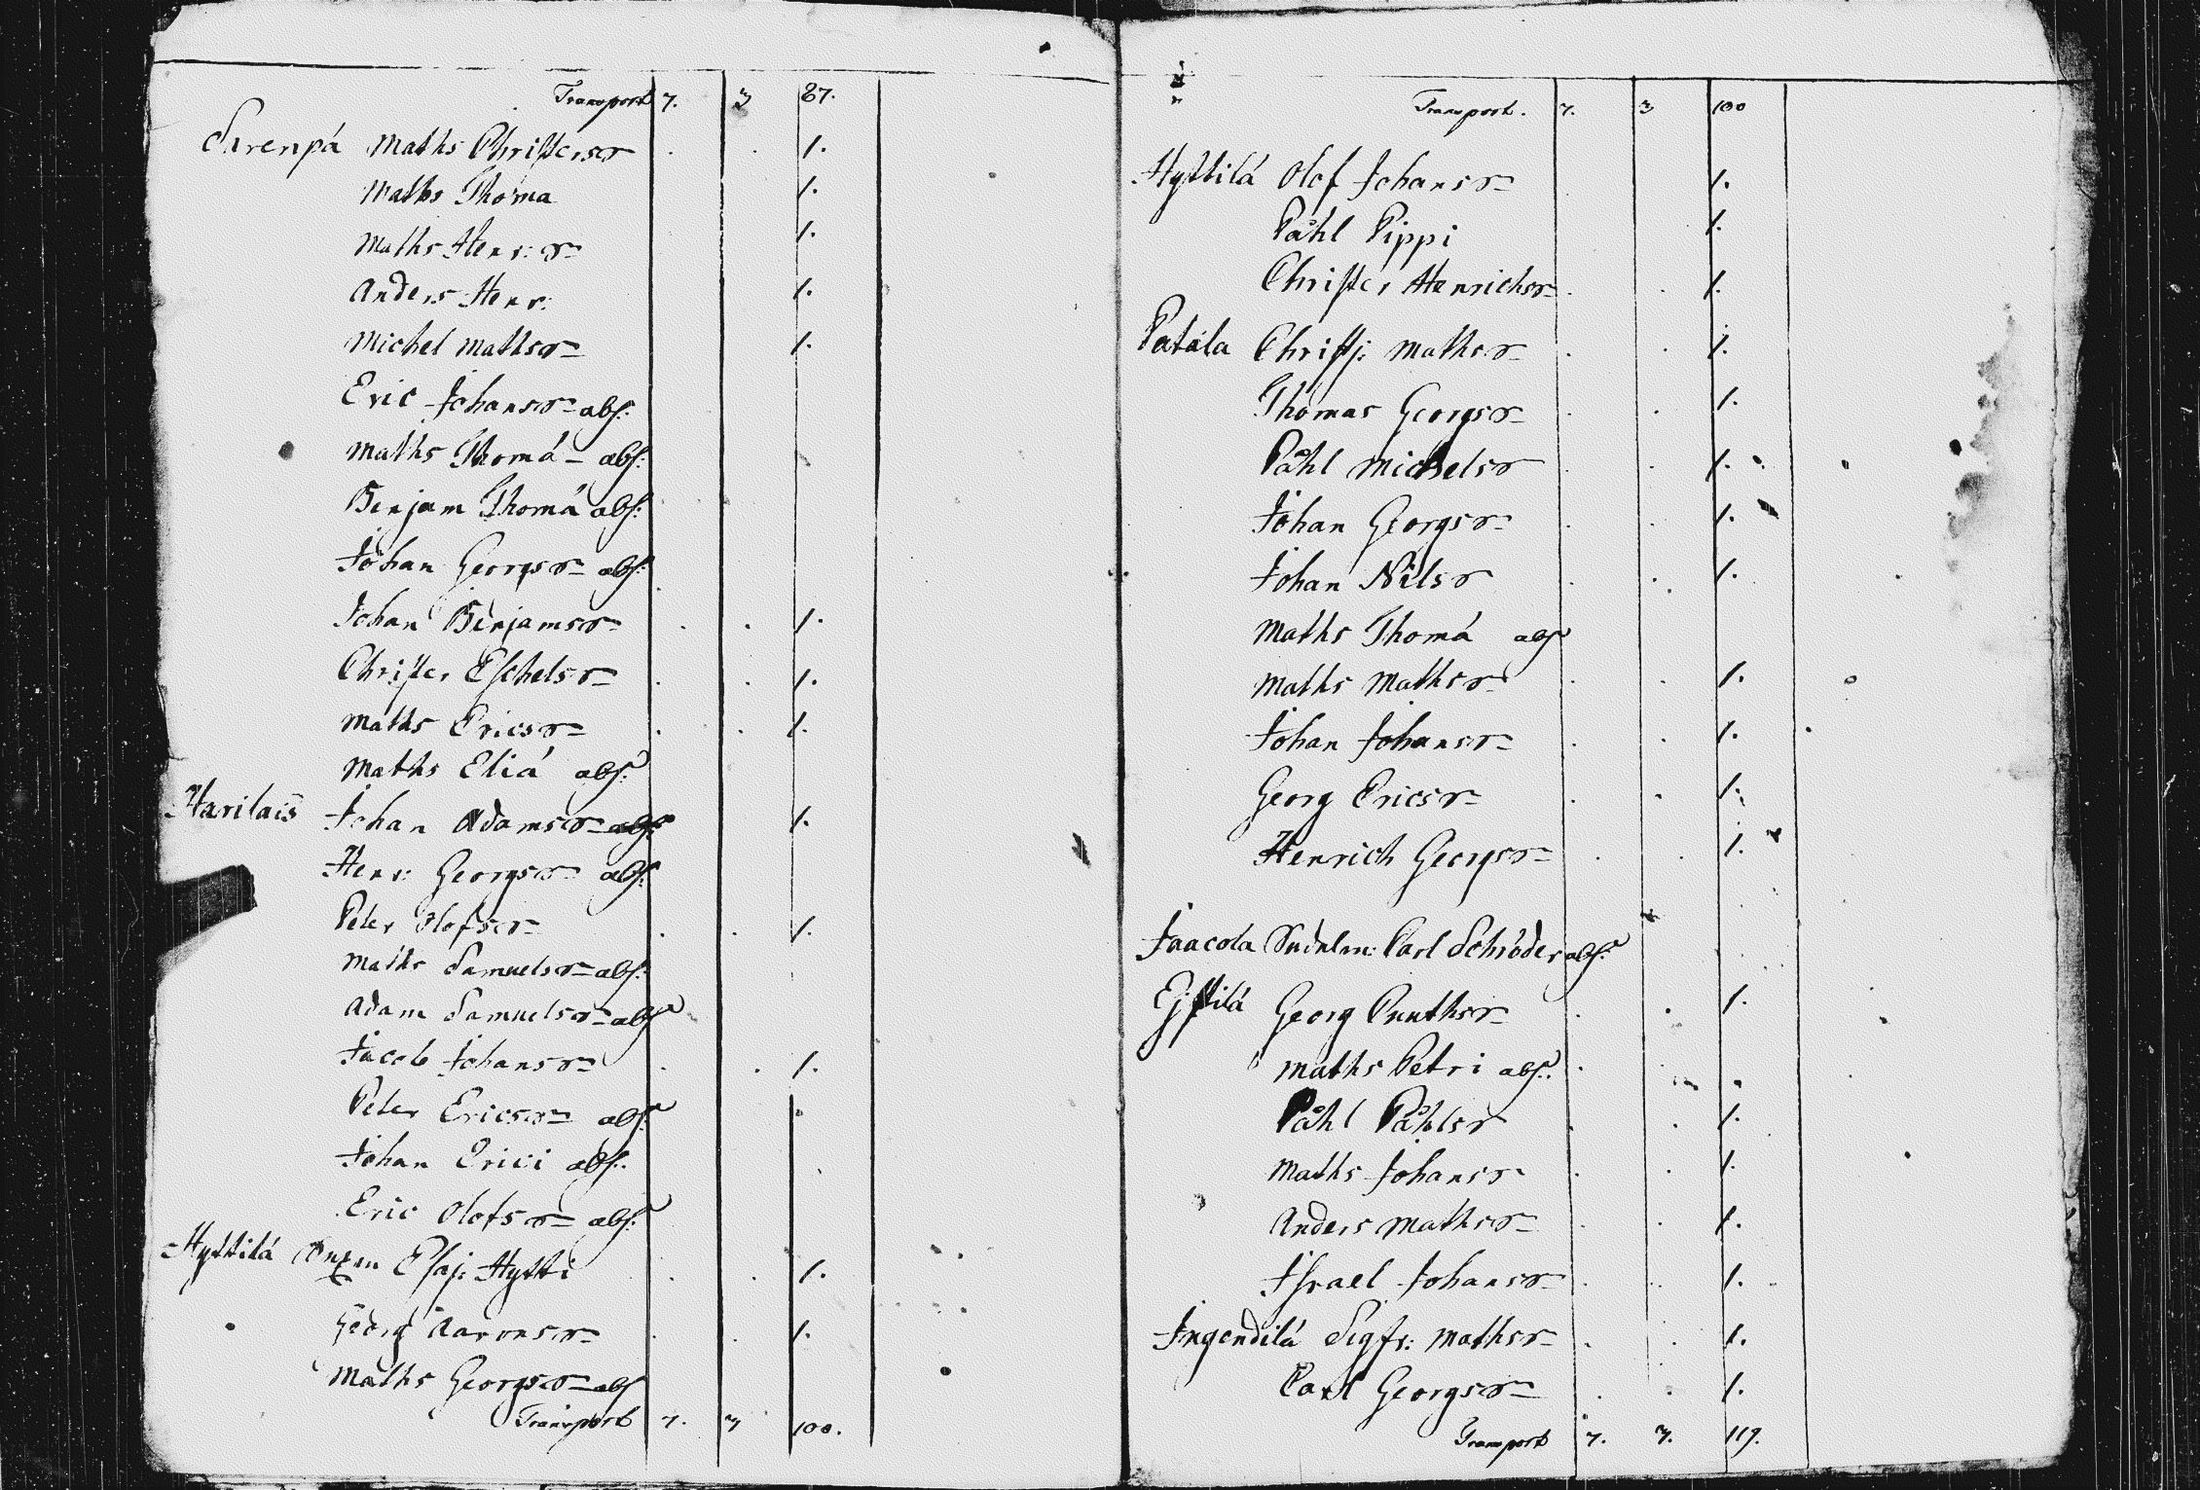 Transport 7. 3 87.
Surenpä Maths Christerss. 1.
Maths Thoma 1.
Maths Henr: s. 1.
Anders Henr: 1.
Michel Mathss. 1.
Eric Johanss. abs:
Maths Thomá abs:
Benjam Thomá abs:
Johan Georgss. abs:
Johan Benjamss. 1.
Christer Eschelss. 1.
Maths Ericss. 1.
Maths Eliá abs:
Harilais Johan Adamss. abs: 1.
Henr: Georgss. abs:
Peter Olofss. 1.
Maths Samuelss. abs:
Adam Samuelss. abs:
Jacob Johanss. 1.
Peter Ericss. abs:
Johan Erici abs:
Eric Olofss. abs:
Hyttilá Esaj: Hytti 1.
Georg Aaronss. 1.
Maths Georgss. abs
Transport 7. 3 100.
Transport. 7. 3 100
Hyttilá Olof Johanss. 1.
Påhl Pippi 1.
Christer Henrichss. 1.
Patala Christj: Mathss. 1.
Thomas Georgss. 1.
Påhl Michelss. 1.
Johan Georgss. 1.
Johan Nilss. 1.
Maths Thomá abs
Maths Mathss. 1.
Johan Johanss. 1.
Georg Ericss. 1.
Henrich Georgss. 1.
Jaacola Carl Schröder abs:
Ejstilá Georg Knuthss. 1.
Maths Petri abs:
Påhl Påhlss. 1.
Maths Johanss. 1.
Anders Mathss. 1.
Israel Johanss. 1.
Ingendilá Sigfr: Mathss. 1.
Carl Georgss. 1.
Transport 7. 3. 119.